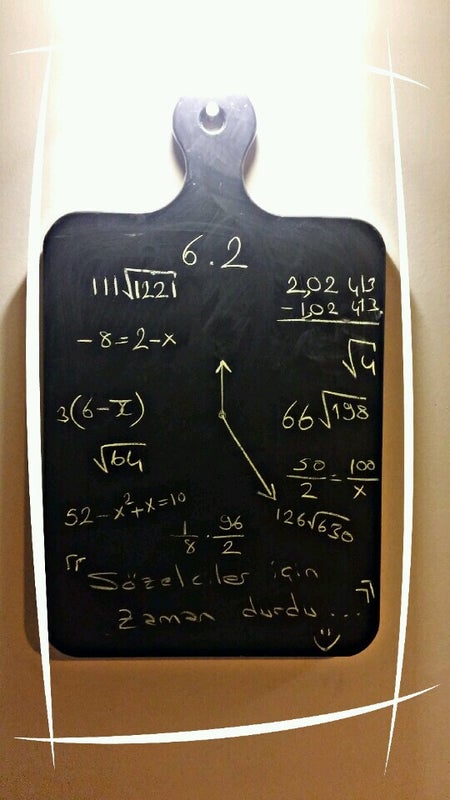 6.2
111√1221
2,02 413
- 1,02 413
-8=2-x
√4
3(6-
66√198
√64
50/2 = 100/x
52-x²+x=10
126√630
1/8 . 96/2
"Sözelciler için
zaman durdu..."